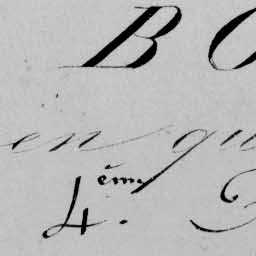 B
en qu
4.ème